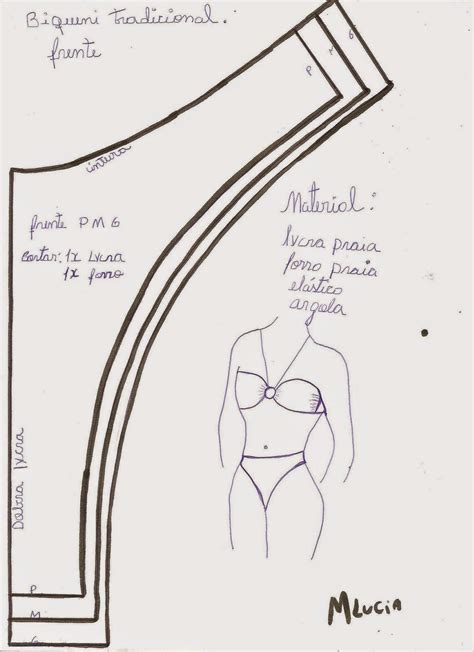 Biquini tradicional:
frente
P M G
cintura
frente P M G
Cortar: 1x Lycra
1x forro
Material:
lycra praia
forro praia
elástico
argola
Dobra lycra
P
M
G
MLUCIA